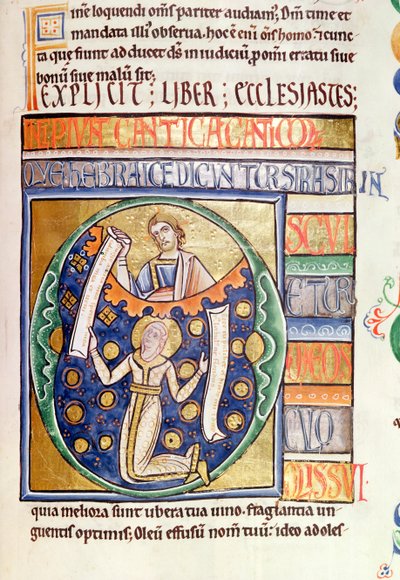 Fine loquendi om̄s pariter audiam᷒; Dm̄ time et
mandata illi᷒ obserua. hoc ē eni ōis homo: cunc
ta que fiunt adducet ds̄ in iudiciū ꝓ omi erratu siue
bonū siue malū sit;
EXPLICIT; LIBER; ECCLESIASTES;
CANTICA CANTICOꝜ
QVE hEBRAICE DICVNTUR SIRASIRIN
O
SCVL
ETUR
CVLO
ORIS SVI
quia meliora sunt ubera tua uino. fraglantia un
guentis optimis; Oleū effusum nom̄ tuū: ideo adoles